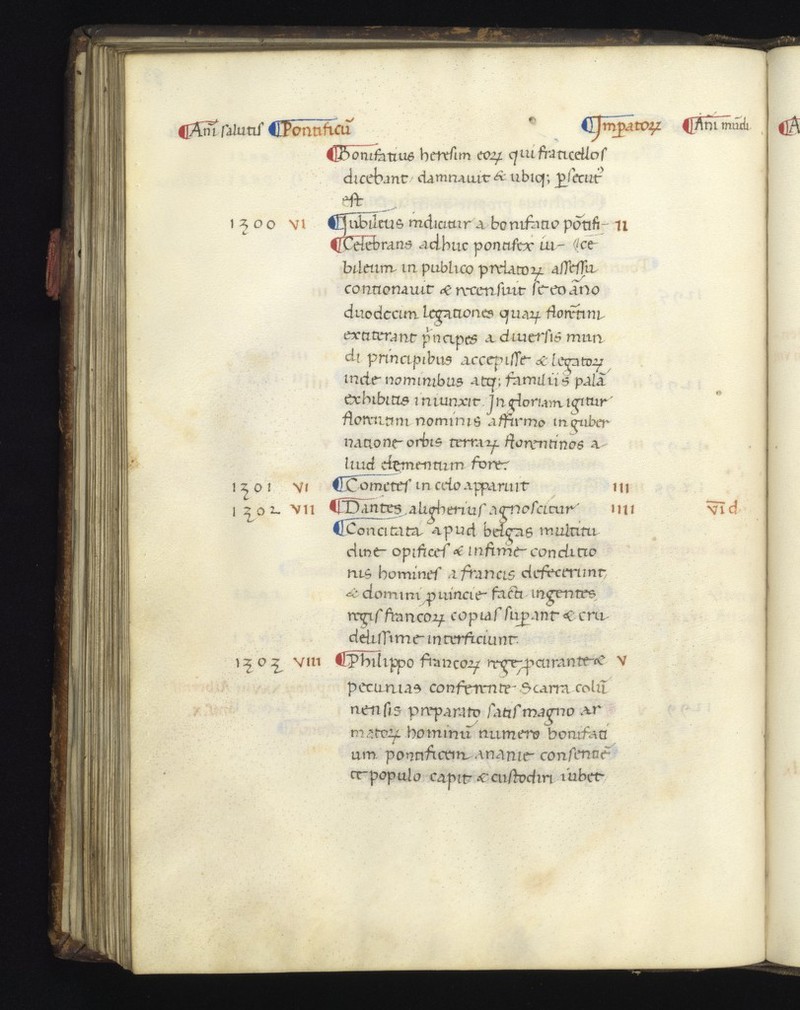 ¶Anī salutis ¶Pontificū ¶Imperatoꝝ ¶Anī mūdi
¶Bonifatius heresim eoꝝ qui fraticellos
dicebant damnauit & ubiq; ꝑsecut᷒
est
1300 VI ¶Iubileus indicitur a bonifatio pōtifi- II
¶Celebrans adhuc pontifex iu- ce
bileum in publico prelatoꝝ assessu
contionauit & recensuit se eo āno
duodecim legationes quaꝝ florētini
extiterant pͥncipes a diuersis mun
di principibus accepisse & legatoꝝ
inde nominibus atq; familiis palā
exhibitis iniunxit. In gloriam igitur
florentini nominis affirmo in guber
natione orbis terraꝝ florentinos a-
liud elementum fore.
1301 VI ¶Cometes in celo apparuit III
1302 VII ¶Dantes aligherius agnoscitur IIII VI d
¶Concitata apud belgas multitu
dine opifices & infime conditio
nis homines a francis defecerunt
& domini ꝓuincie facti ingentes
regis francoꝝ copias suꝑant & cru
delissime interficiunt.
1303 VIII ¶Philippo francoꝝ rege ꝓcurante & V
pecunias conferente Scarra colū
nensis preparato satis magno ar
matoꝝ hominū numero bonifati
um pontificem ananie consentiē
te populo capit & custodiri iubet